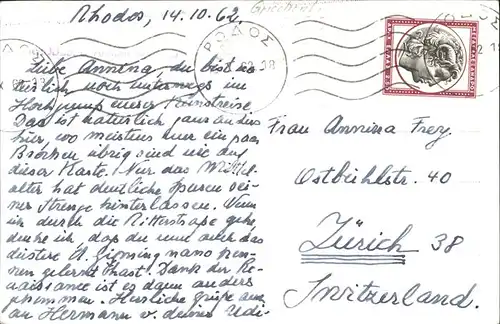 Rhodos, 14.10.62
Griechenl.
ΡΟΔΟΣ
Liebe Annina, du bist na-
türlich noch unterwegs im
Hochgump eurer Kunstreise.
Das ist natürlich ganz anders
hier, wo meistens nur ein paar
Bröcken übrig sind wie auf
dieser Karte. Nur das Mittel-
alter hat deutliche Spuren sei-
ner Strenge hinterlassen. Wenn
ich durch die Ritterstraße gehe,
denke ich, daß du nun auch das
düstere S. Gimignano ken-
nen gelernt hast. Dank der Re-
naissance ist es dann anders
gekommen. Herzliche Grüße auch
an Hermann v. deiner Udi
Frau Annina Frey
Ostbühlstr. 40
Zürich 38
Switzerland.